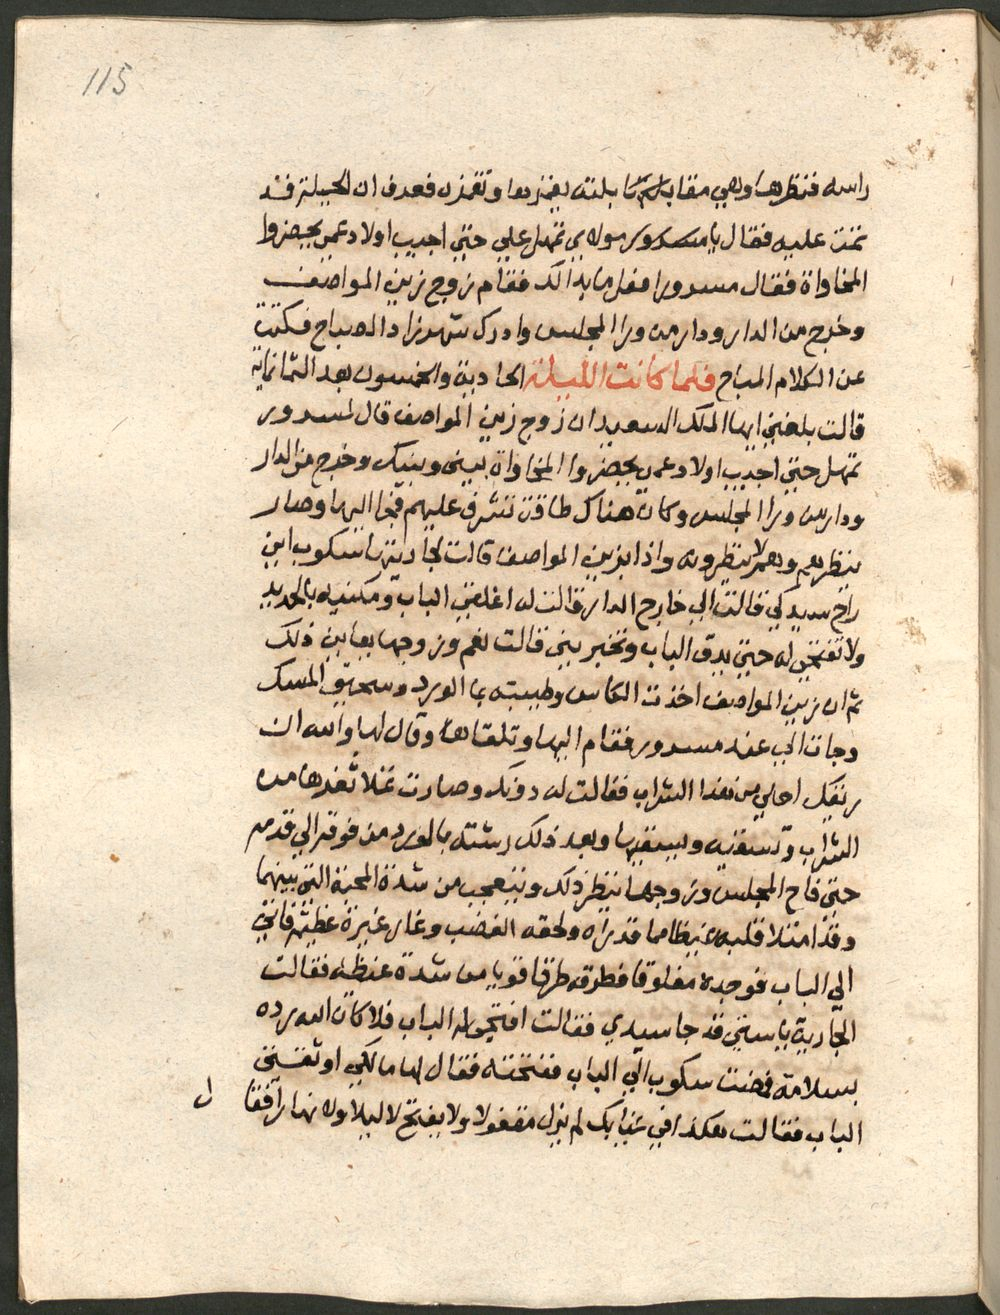 115
راسه فنظرها وهي مقابلته يغمزها وتغمزه فعرف ان الحيلة قد
تمت عليه فقال يا مسرور مولاي تمهل علي حتي اجيب اولاد عمي يحضروا
المخاواة فقال مسرور افعل ما بدالك فقام زوج زين المواصف
وخرج من الدار ودار من ورا المجلس وادرك شهرزاد الصباح فسكتت
عن الكلام المباح فلما كانت الليلة الحادية والخمسون بعد الثمانماية
قالت بلغني ايها الملك السعيد ان زوج زين المواصف قال لمسرور
تمهل حتي اجيب اولاد عمي يحضروا المخاواة بيني وبينك وخرج من الدار
ودار من ورا المجلس وكان هناك طاقة تشرف عليهم فجا اليها وصار
ينظرهم وهم لا ينظرونه واذا بزين المواصف قالت لجاريتها سكوب اين
راح سيدكي قالت الي خارج الدار قالت له اغلقي الباب ومكنيه بالحديد
ولا تفتحي له حتي يدق الباب وتخبريني قالت نعم وزوجها يعاين ذلك
ثم ان زين المواصف اخذت الكاس وطيبته بما الورد وسحيق المسك
وجات الي عند مسرور فقام اليها وتلقاها وقال لها والله ان
ريقك احلي من هذا الشراب فقالت له دونك وصارت تملا ثغرها من
الشراب وتسقيه ويسقيها وبعد ذلك رشته بالورد من فوقه الي قدمه
حتي فاح المجلس وزوجها ينظر ذلك ويتعجب من شدة المحبة التي بينهما
وقد امتلا قلبه غيظا مما قد راه ولحقه الغضب وغار غيرة عظيمة فاتي
الي الباب فوجده مغلوقا فطرقه طرقا قويا من شدة غيظه فقالت
الجارية يا ستي قد جا سيدي فقالت افتحي له الباب فلا كان الله رده
بسلامة فمضت سكوب الي الباب ففتحته فقال لها مالكي اوثقتي
الباب فقالت هكذا في غيابك لم يزل مقفولا ولا يفتح لا ليلا ولا نهارا فقا
ل